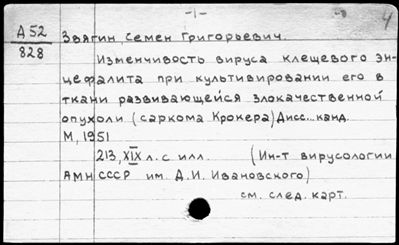 -1-
4
А 52
828
Звягин, Семен Григорьевич.
Изменчивость вируса клещевого эн-
цефалита при культивировании его в
ткани развивающейся злокачественной
опухоли (саркома Крокера) Дисс... канд.
М, 1951
213, XIX л. с илл. (Ин-т вирусологии
АМН СССР им. Д.И. Ивановского)
см. след. карт.